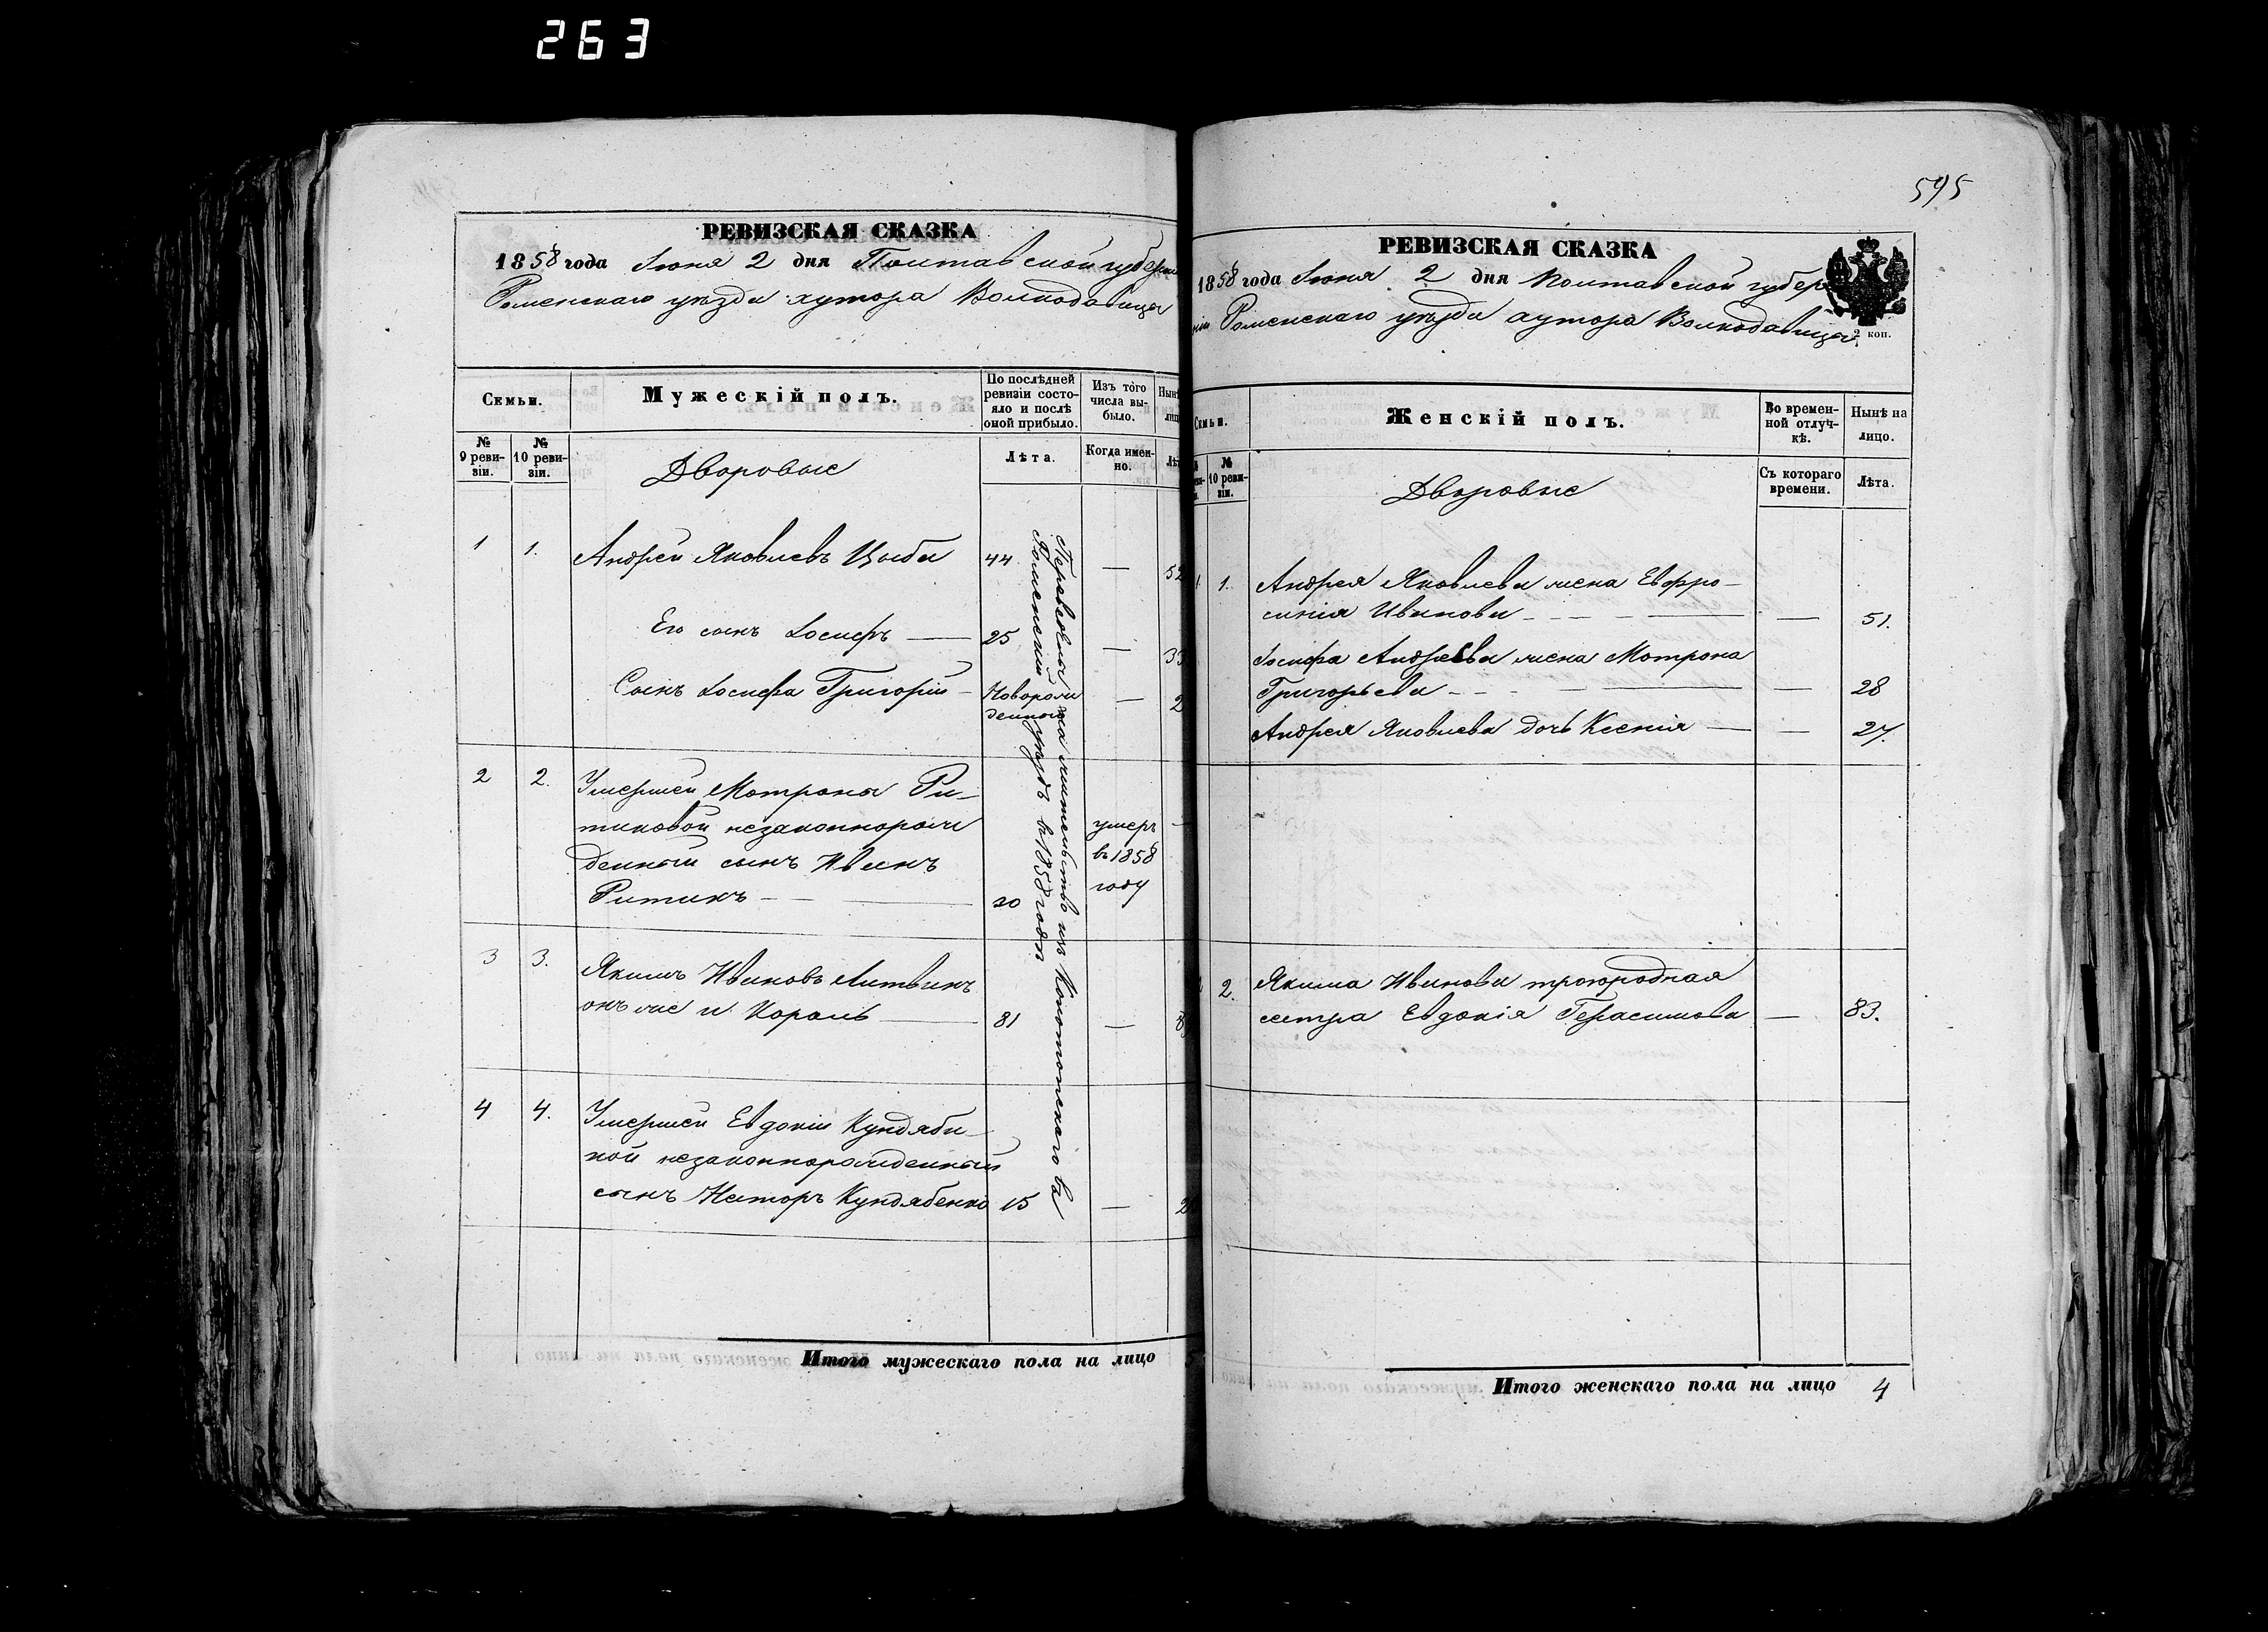 263
РЕВИЗСКАЯ СКАЗКА
1858 года Іюня 2 дня Полтавской губерні
Роменскаго уѣзда хутора Волкодавицы
Семьи.
Мужескій полъ.
По послѣдней ревизіи состояло и послѣ оной прибыло.
Изъ того числа выбыло.
№ 9 ревизіи.
№ 10 ревизіи.
Дворовые
Лѣта.
Когда именно.
1 1. Андрей Яковлевъ Цыба 44 — 52
Его сынъ Іосифъ — 25 — 33
Сынъ Іосифа Григорій — Новорож
денный — 2
2 2. Умершей Мотроны Ри-
тиковой незаконнорож
денный сынъ Иванъ
Ритикъ — 20 умеръ
въ 1858
году
3 3. Якимъ Ивановъ Литвинъ
онъ же и Король — 81 —
4 4. Умершей Евдокіи Кундяби-
ной незаконнорожденный
сынъ Несторъ Кундябенко 15 —
Переведены на жительство изъ Конотопскаго въ
Роменскій уѣздъ въ 1858 году
Итого мужескаго пола на лицо
595
РЕВИЗСКАЯ СКАЗКА
1858 года Іюня 2 дня Полтавской губер
ніи Роменскаго уѣзда хутора Волкодавицы
2 коп.
Семьи.
Женскій полъ.
Во временной отлучкѣ.
Нынѣ на лицо.
№ 10 ревизіи.
Дворовые
Съ котораго времени.
Лѣта.
1. Андрея Яковлева жена Евфро-
синія Иванова — — 51.
Іосифа Андреева жена Мотрона
Григорьева — — 28
Андрея Яковлева дочь Ксенія — — 27.
2. Якима Иванова троюродная
сестра Евдокія Герасимова — 83.
Итого женскаго пола на лицо 4